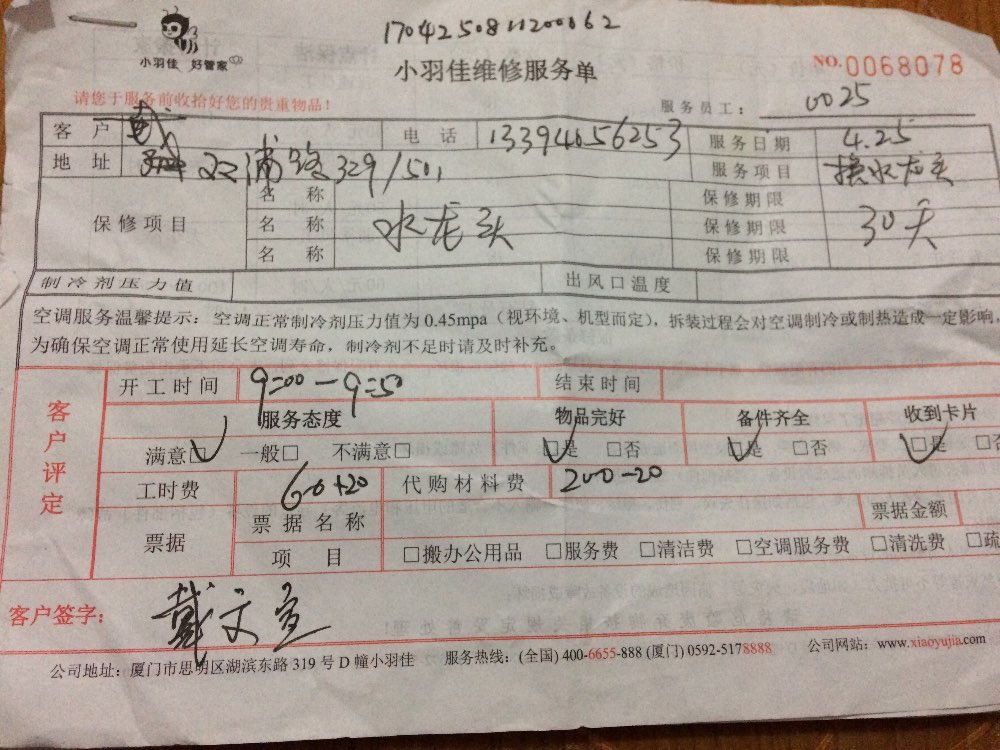 1704250811200062
小羽佳 好管家
小羽佳维修服务单
NO.0068078
请您于服务前收拾好您的贵重物品！
服务员工： 0025
客 户 戴 电 话 13394056253 服务日期 4.25
地 址 双浦路329/501 服务项目 换水龙头
保修项目 名 称 保修期限
名 称 水龙头 保修期限 30天
名 称 保修期限
制冷剂压力值 出风口温度
空调服务温馨提示：空调正常制冷剂压力值为 0.45mpa（视环境、机型而定），拆装过程会对空调制冷或制热造成一定影响，
为确保空调正常使用延长空调寿命，制冷剂不足时请及时补充。
客户评定
开工时间 9:00-9:50 结束时间
服务态度 物品完好 备件齐全 收到卡片
满意□ 一般□ 不满意□ □是 □否 □是 □否 □是 □否
工时费 60+20 代购材料费 200-20
票据 票据名称 票据金额
项 目 □搬办公用品 □服务费 □清洁费 □空调服务费 □清洗费 □疏
客户签字： 戴文宣
公司地址：厦门市思明区湖滨东路 319 号 D 幢小羽佳 服务热线：(全国) 400-6655-888 (厦门) 0592-5178888 公司网站：www.xiaoyujia.com